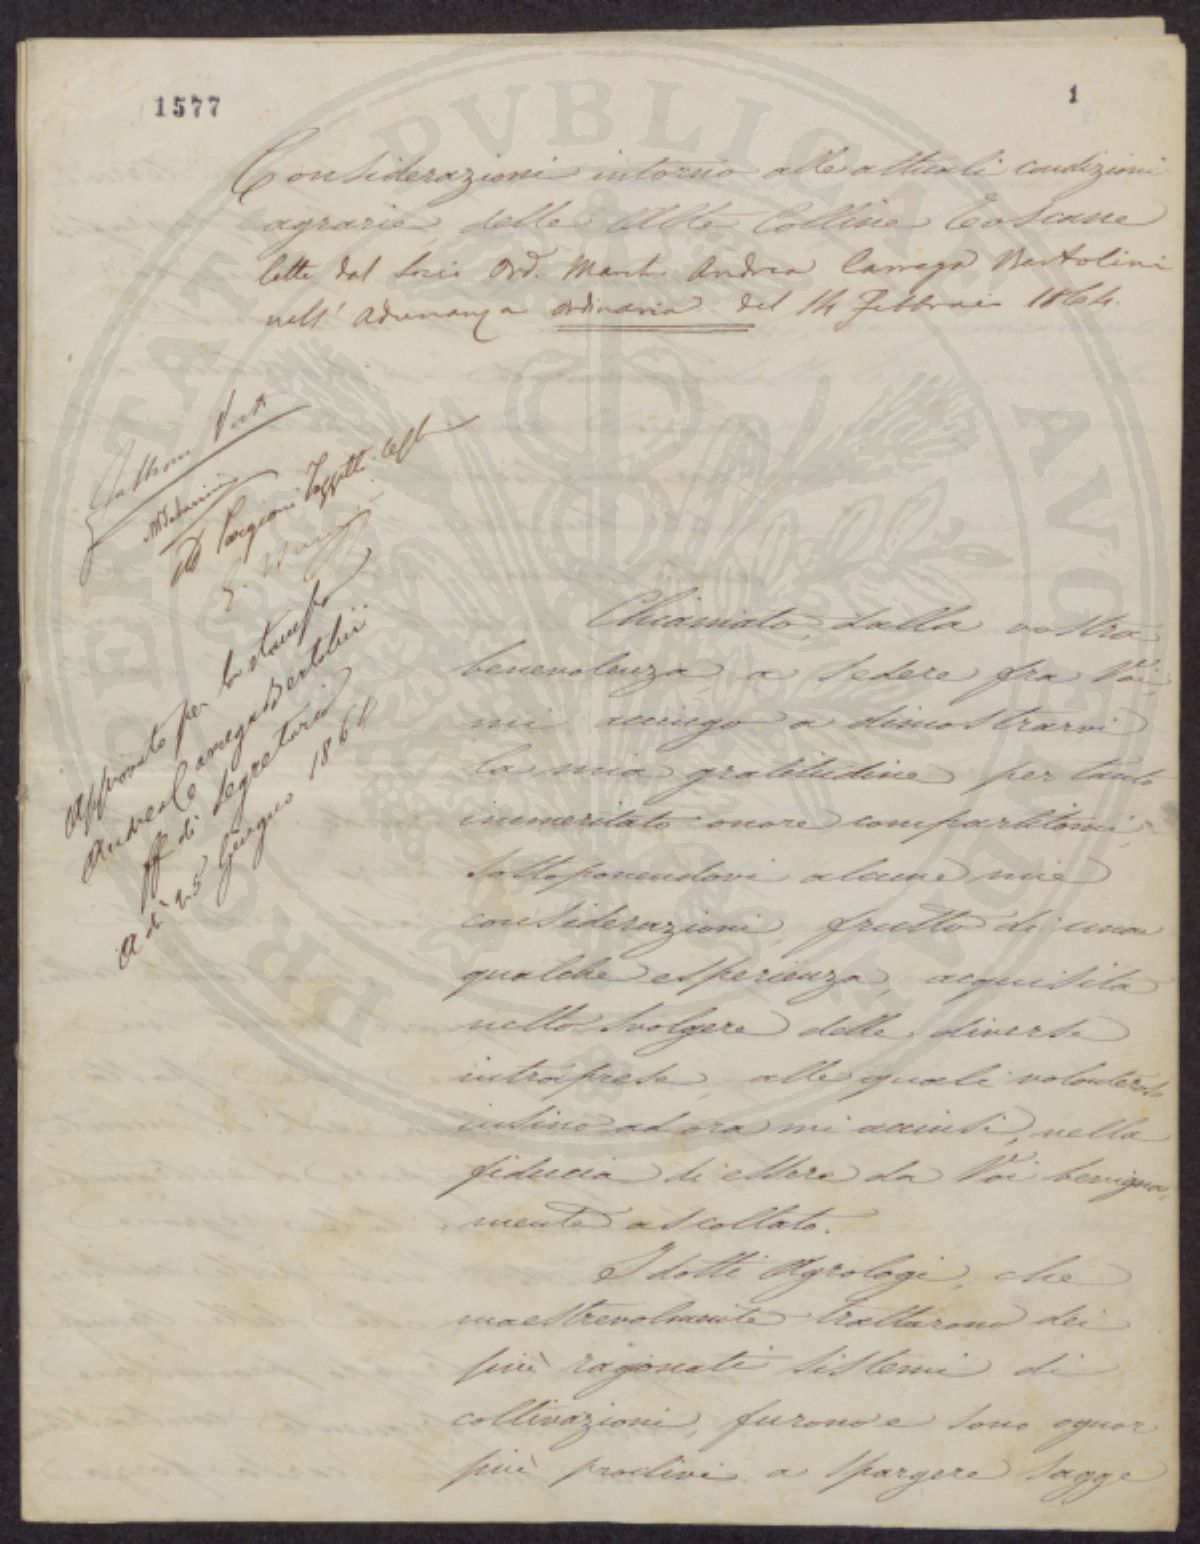 1577
1
Considerazioni intorno alle attuali condizioni
agrarie delle Alte Colline Toscane
lette dal Socio Ord. March. Andrea Carrega Bertolini
nell' adunanza ordinaria del 14 Febbraio 1864.
Ad Targioni Tozzetti
Approvato per la stampa
Andrea Carrega Bertolini
ff. di Segretario
A dì 25 Giugno 1864
Chiamato dalla vostra
benevolenza, a sedere fra Voi,
mi accingo a dimostrarvi
la mia gratitudine per tanto
immeritato onore compartitomi,
sottoponendovi alcune mie
considerazioni, frutto di una
qualche esperienza, acquisita
nello svolgere delle diverse
intraprese, alle quali volonteroso
insino ad ora mi accinsi, nella
fiducia di essere da Voi benigna-
mente ascoltato.
I dotti Agrologi, che
maestrevolmente trattarono dei
più ragionati sistemi di
coltivazioni, furono e sono ognor
più proclivi a spargere sagge
PUBLICAE
PROSPERITATI
AUGENDAE